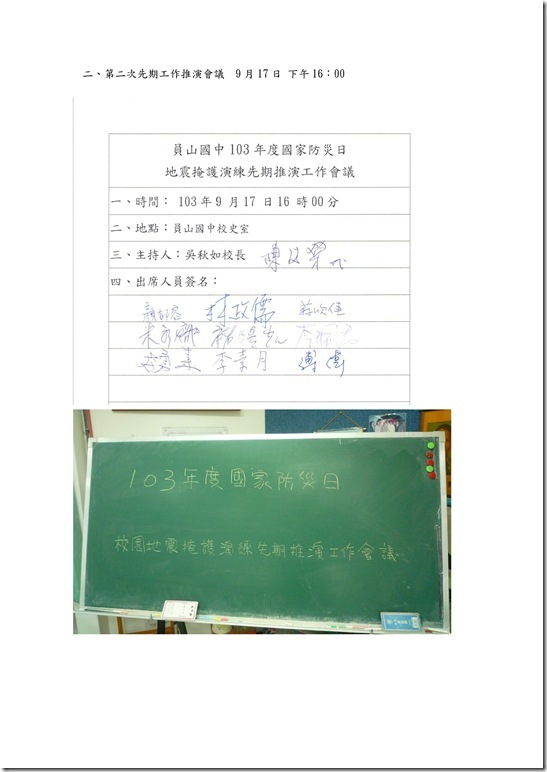 二、第二次先期工作推演會議 9月17日 下午16:00
員山國中103年度國家防災日
地震掩護演練先期推演工作會議
一、時間: 103年9月17日16時00分
二、地點:員山國中校史室
三、主持人:吳秋如校長
四、出席人員簽名:
林政儒
李素月
103年度國家防災日
校園地震掩護演練先期推演工作會議